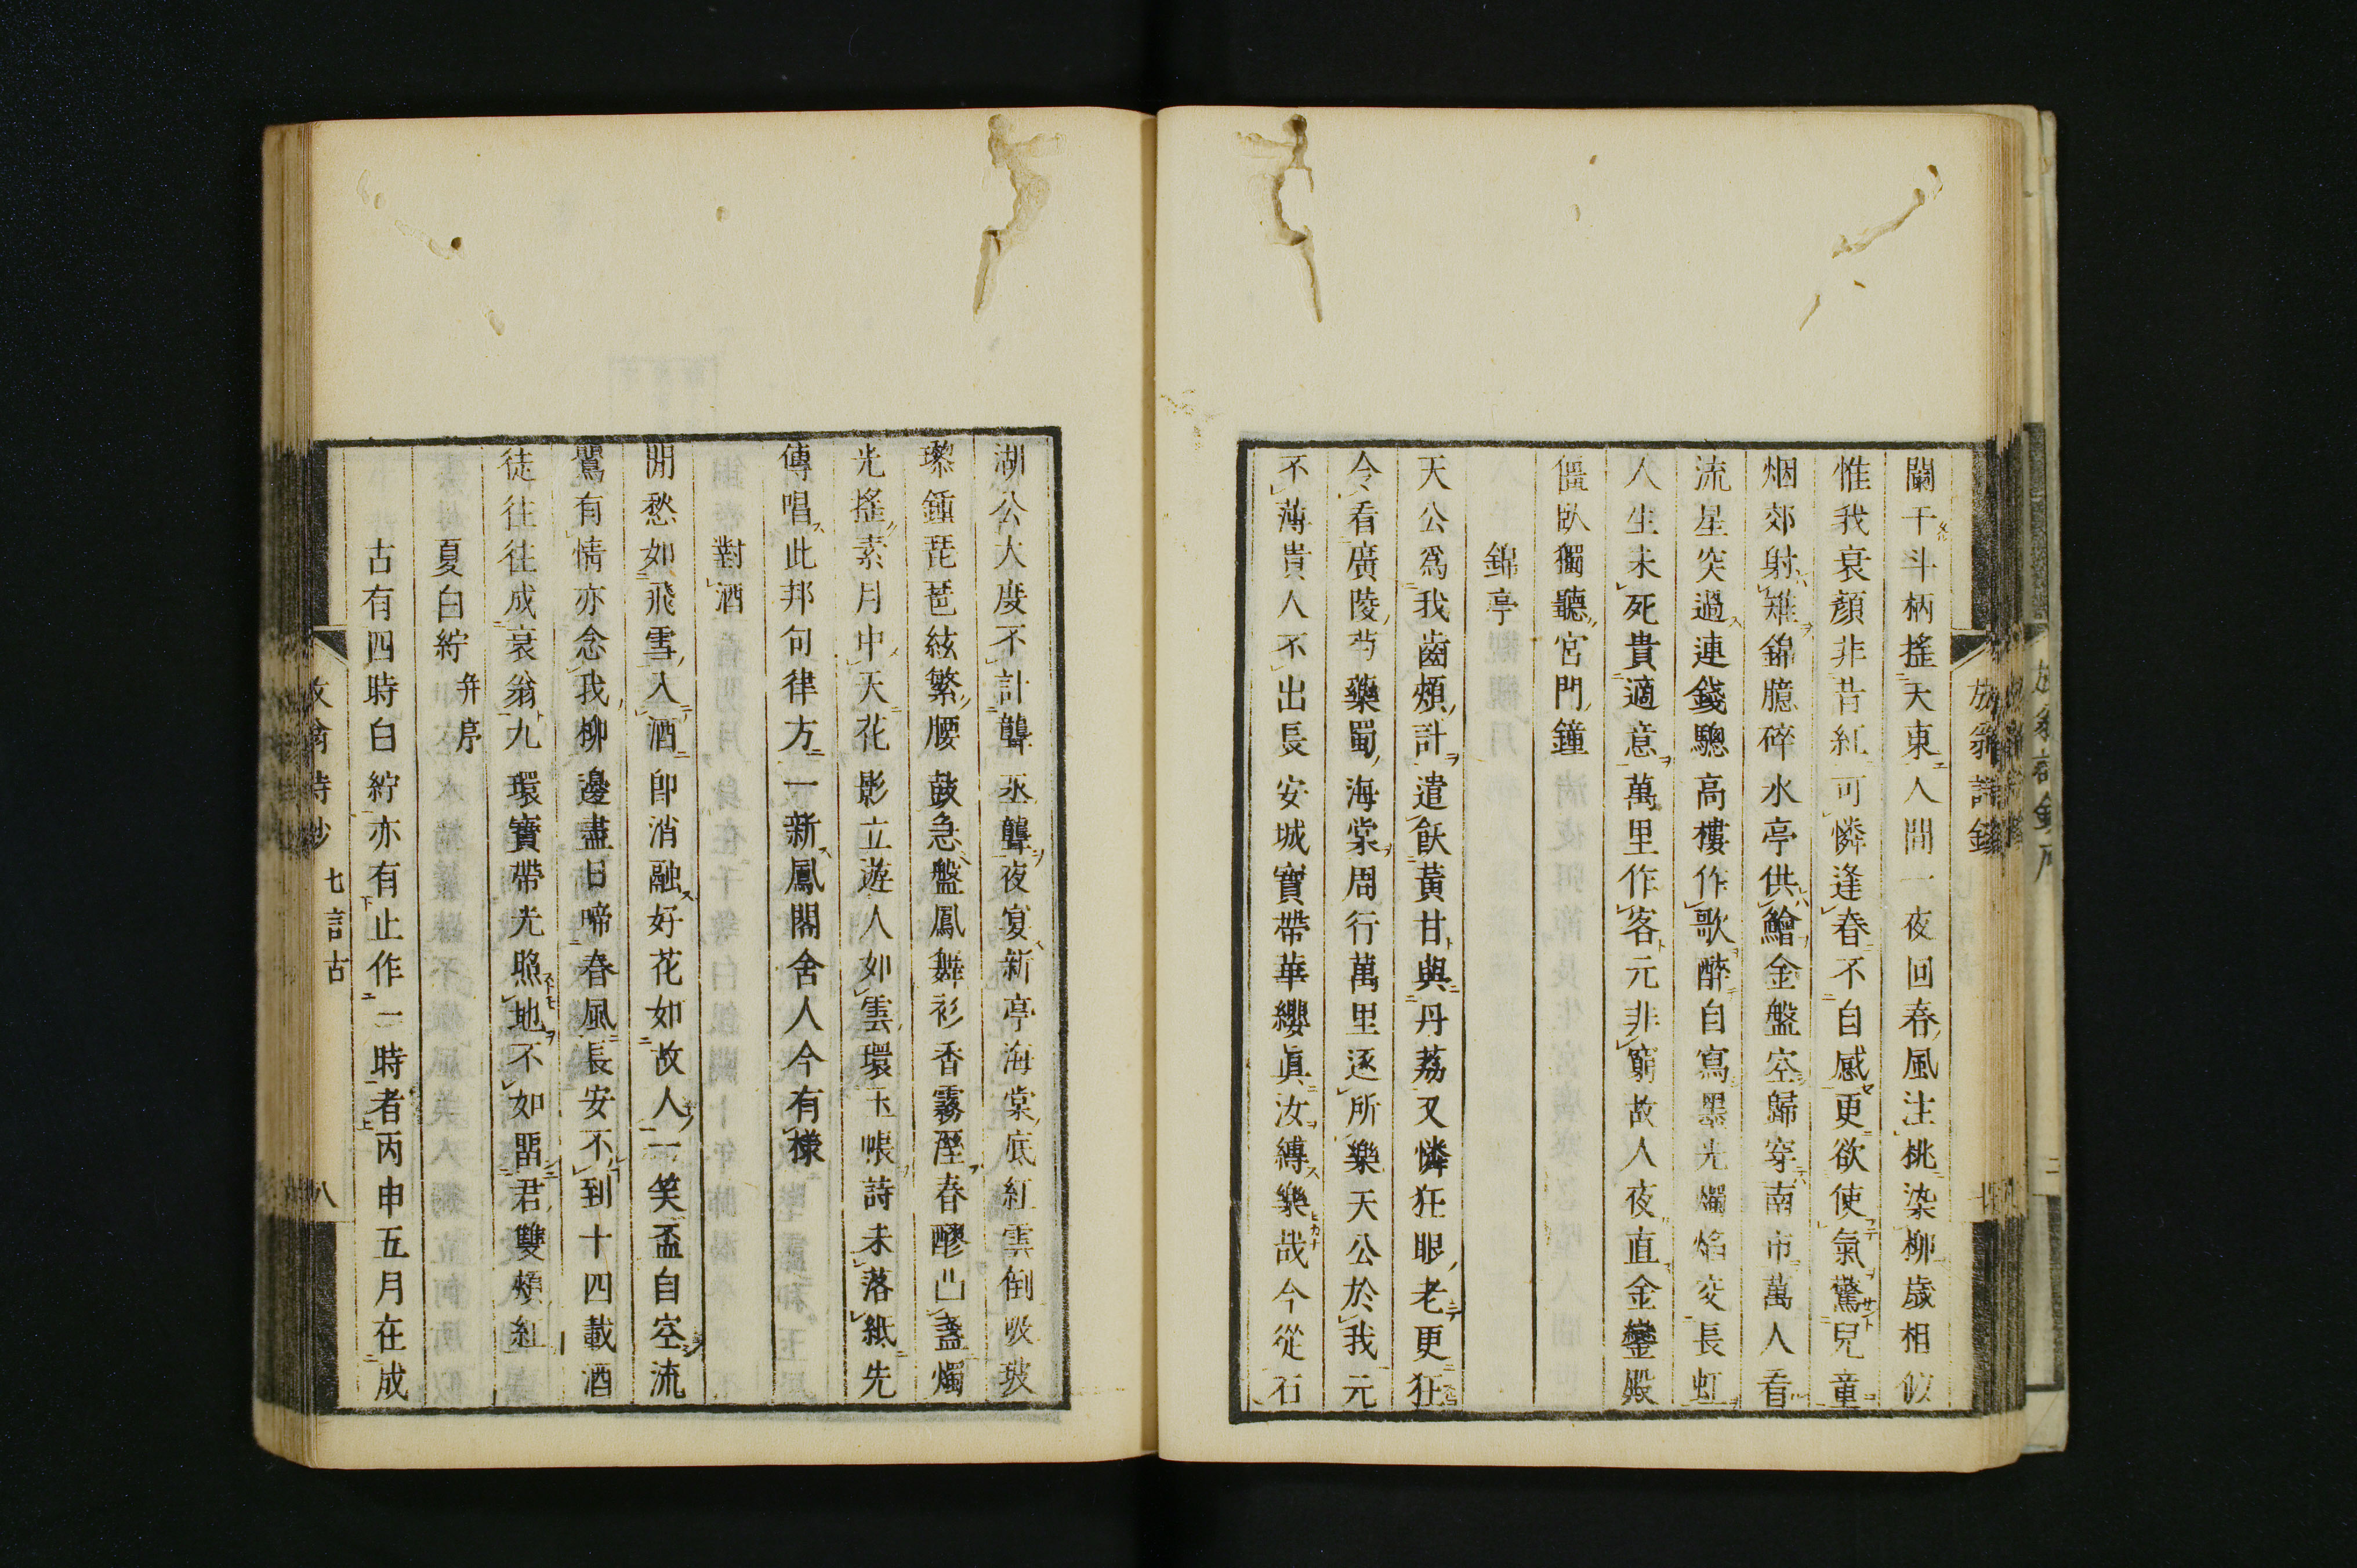 闌干斗柄搖天東人間一夜回春風注桃染柳歲相似
惟我衰顏非昔紅可憐逢春不自感更欲使氣驚兒童
烟郊射雉錦臆碎水亭供鱠金盤空歸穿南市萬人看
流星突過連錢驄高樓作歌醉自寫墨光燭焰交長虹
人生未死貴適意萬里作客元非窮故人夜直金鑾殿
僵臥獨聽宮門鐘
錦亭
天公爲我齒頰計遣飫黃甘與丹荔又憐狂眼老更狂
令看廣陵芍藥蜀海棠周行萬里逐所樂天公於我元
不薄貴人不出長安城寶帶華纓眞汝縛樂哉今從石
湖公大度不計聾丞聾夜宴新亭海棠底紅雲倒吸玻
瓈鍾琵琶絃繁腰鼓急盤鳳舞衫香霧溼春醪凸盞燭
光搖素月中天花影立遊人如雲環玉帳詩未落紙先
傳唱此邦句律方一新鳳閣舍人今有樣
對酒
閒愁如飛雪入酒卽消融好花如故人一笑盃自空流
鶯有情亦念我柳邊盡日啼春風長安不到十四載酒
徒往往成衰翁九環寶帶光照地不如畱君雙頰紅
夏白紵 幷序
古有四時白紵亦有止作一時者丙申五月在成
七言古
八